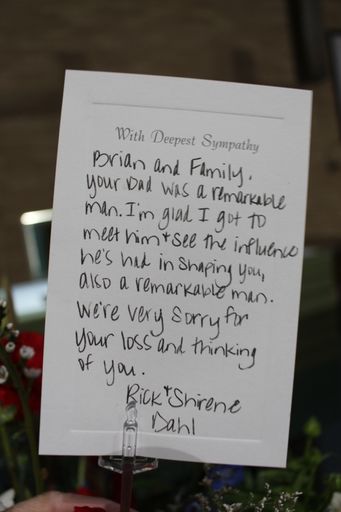 With Deepest Sympathy
Brian and Family,
your Dad was a remarkable
man. I'm glad I got to
meet him + see the influence
he's had in shaping you,
also a remarkable man.
We're very sorry for
your loss and thinking
of you.
Rick + Shirene
Dahl